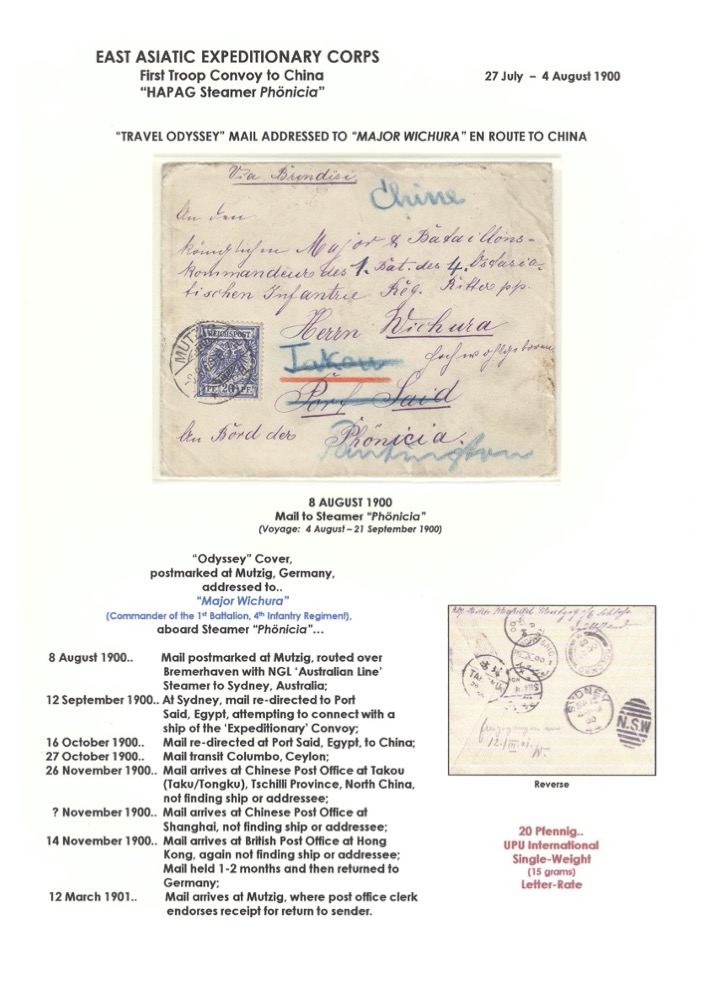 EAST ASIATIC EXPEDITIONARY CORPS
First Troop Convoy to China
27 July – 4 August 1900
"HAPAG Steamer Phönicia"
"TRAVEL ODYSSEY" MAIL ADDRESSED TO "MAJOR WICHURA" EN ROUTE TO CHINA
Via Brindisi
Chine
An den
königlichen Major & Bataillons-
kommandeurs des 1. Bat. des 4. Ostasia-
tischen Infantrie Reg. Ritter pp.
Herrn Wichura
Hochwohlgeboren
Takou
Port Said
An Bord der Phönicia.
MUTZIG
REICHSPOST
20
8 AUGUST 1900
Mail to Steamer "Phönicia"
(Voyage: 4 August – 21 September 1900)
"Odyssey" Cover,
postmarked at Mutzig, Germany,
addressed to..
"Major Wichura"
(Commander of the 1st Battalion, 4th Infantry Regiment),
aboard Steamer "Phönicia"...
8 August 1900.. Mail postmarked at Mutzig, routed over
Bremerhaven with NGL 'Australian Line'
Steamer to Sydney, Australia;
12 September 1900.. At Sydney, mail re-directed to Port
Said, Egypt, attempting to connect with a
ship of the 'Expeditionary' Convoy;
16 October 1900.. Mail re-directed at Port Said, Egypt, to China;
27 October 1900.. Mail transit Columbo, Ceylon;
26 November 1900.. Mail arrives at Chinese Post Office at Takou
(Taku/Tongku), Tschilli Province, North China,
not finding ship or addressee;
? November 1900.. Mail arrives at Chinese Post Office at
Shanghai, not finding ship or addressee;
14 November 1900.. Mail arrives at British Post Office at Hong
Kong, again not finding ship or addressee;
Mail held 1-2 months and then returned to
Germany;
12 March 1901.. Mail arrives at Mutzig, where post office clerk
endorses receipt for return to sender.
SYDNEY
N.S.W
Reverse
20 Pfennig..
UPU International
Single-Weight
(15 grams)
Letter-Rate